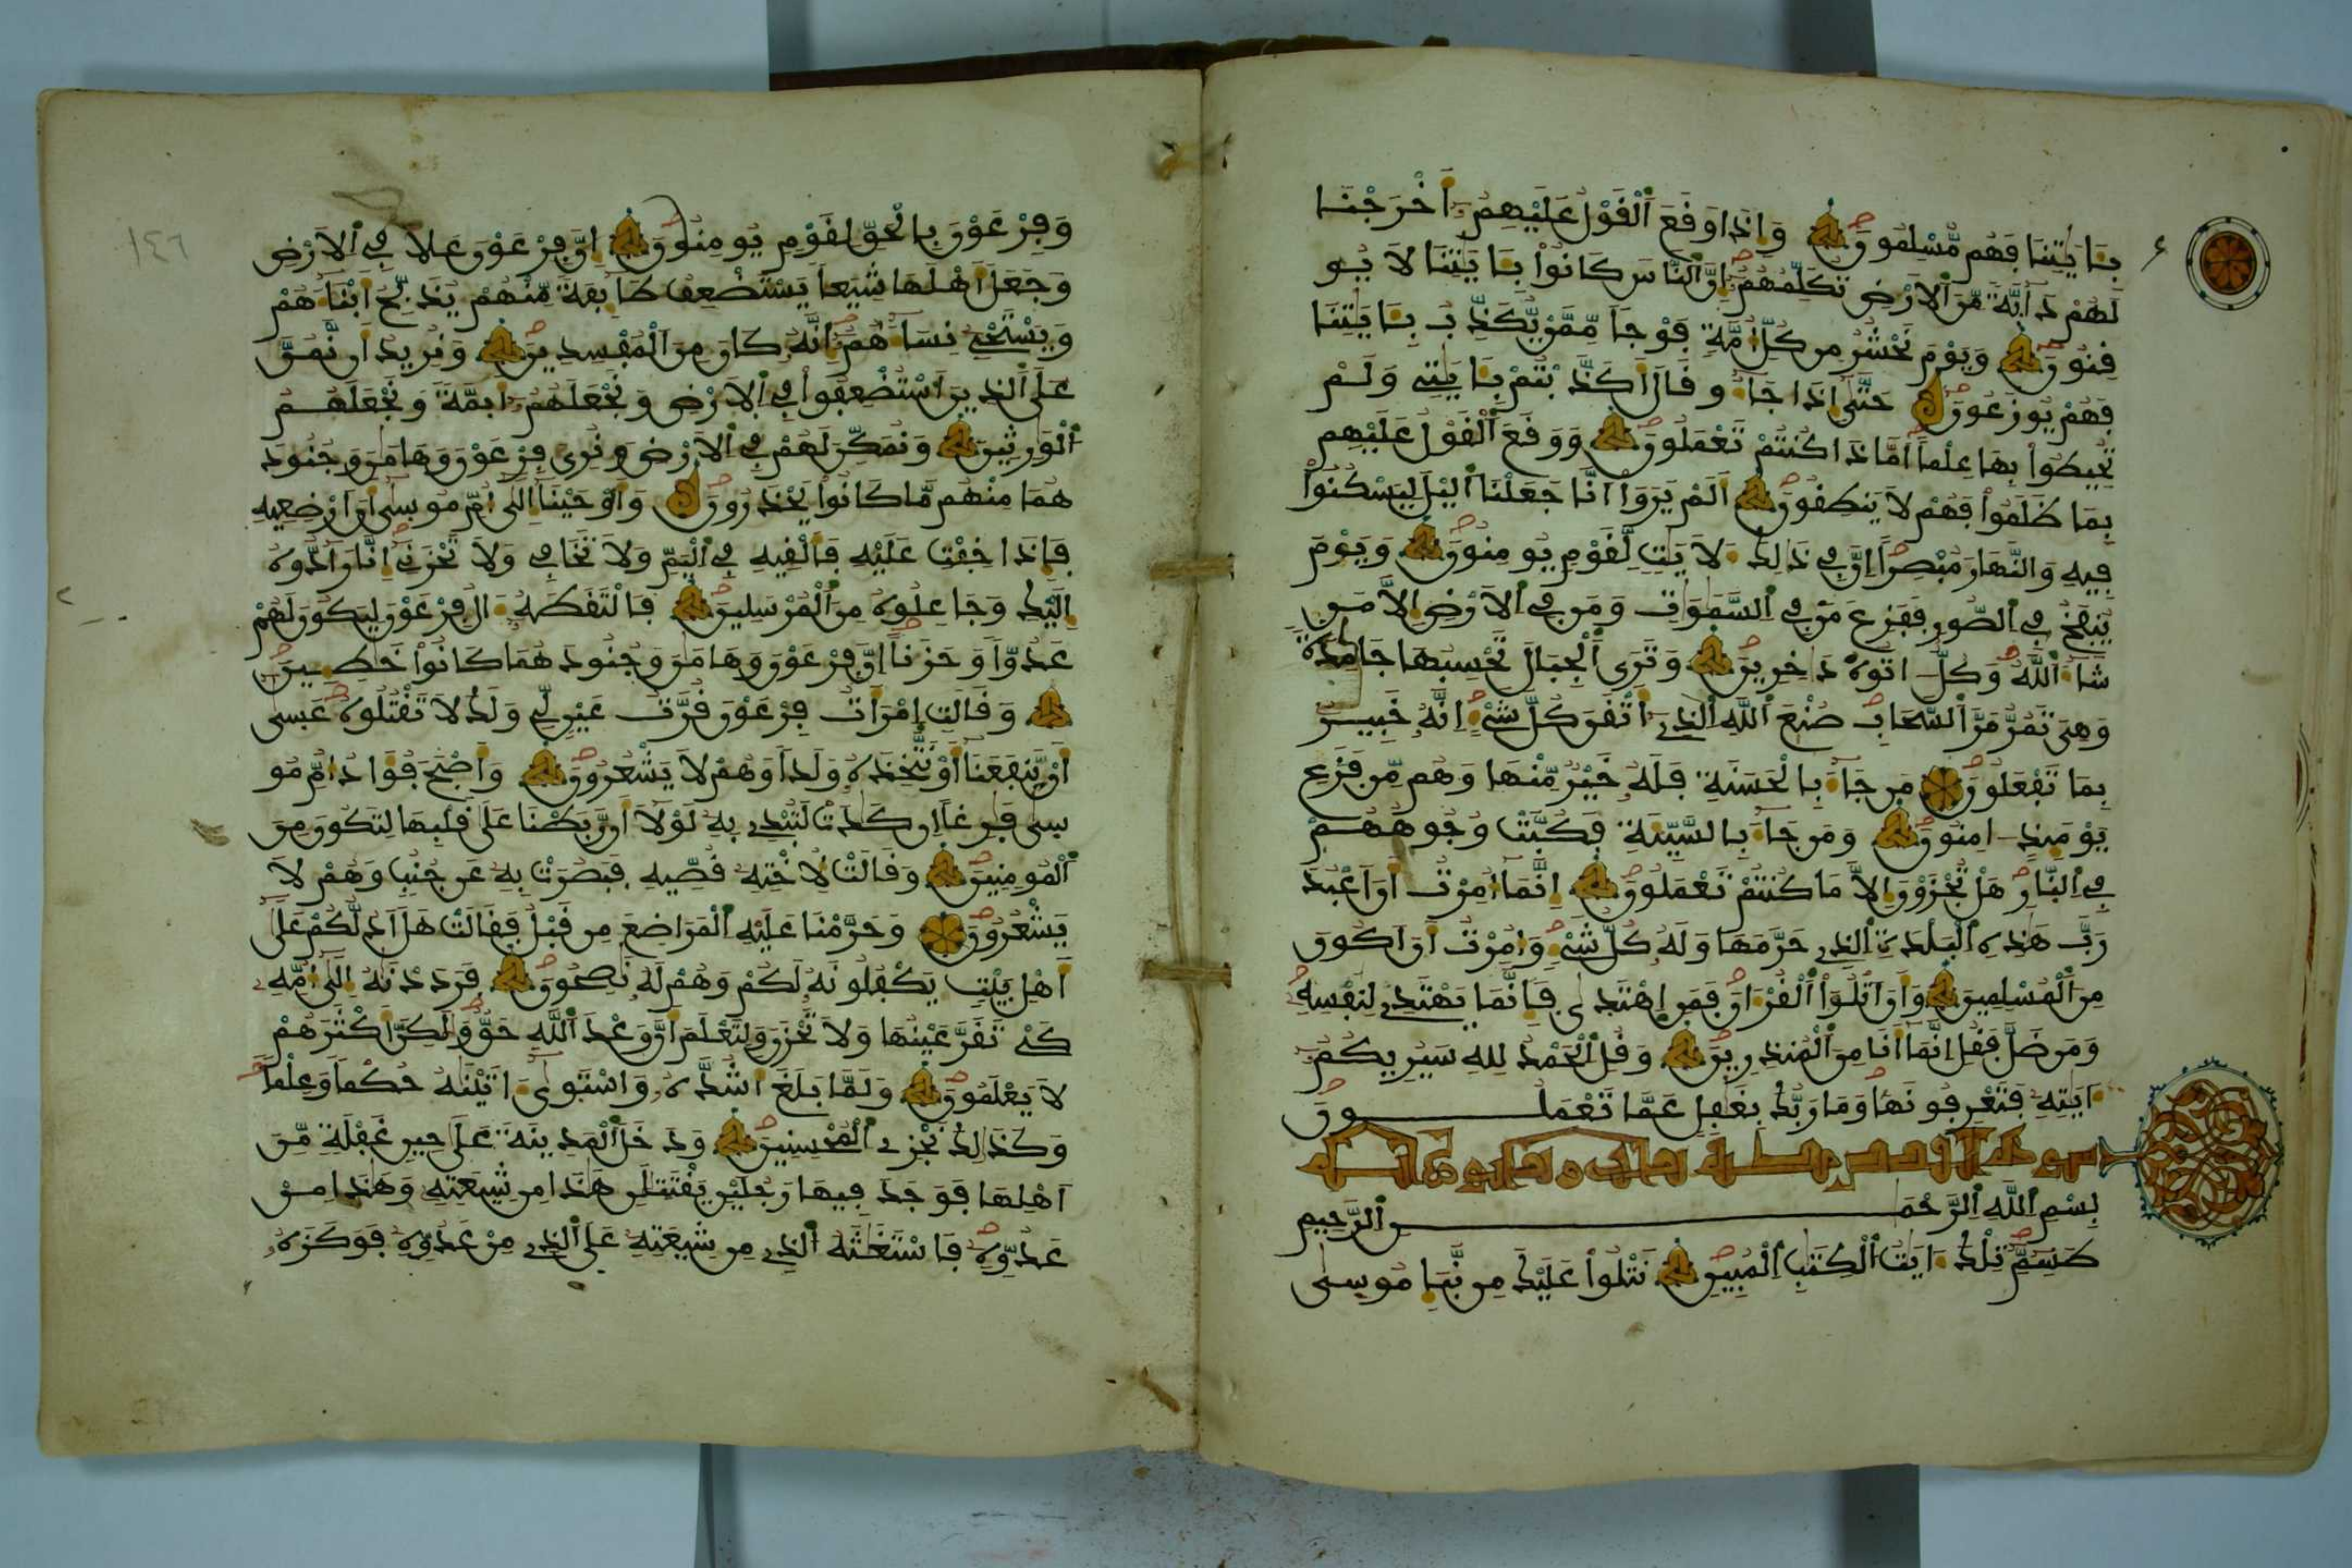 بِـَٔايَٰتِنَا فَهُم مُّسْلِمُونَ وَإِذَا وَقَعَ ٱلْقَوْلُ عَلَيْهِمُۥٓ أَخْرَجْنَا
لَهُمْ دَآبَّةً مِّنَ ٱلْأَرْضِ تُكَلِّمُهُمُۥٓ إِنَّ ٱلنَّاسَ كَانُوا۟ بِـَٔايَٰتِنَا لَا يُو
قِنُونَ وَيَوْمَ نَحْشُرُ مِن كُلِّ أُمَّةٍ فَوْجًا مِّمَّنْ يُّكَذِّبُ بِـَٔايَٰتِنَا
فَهُمْ يُوزَعُونَ حَتَّىٰٓ إِذَا جَآءُو قَالَ أَكَذَّبْتُم بِـَٔايَٰتِي وَلَمْ
تُحِيطُوا۟ بِهَا عِلْمًا أَمَّاذَا كُنتُمْ تَعْمَلُونَ وَوَقَعَ ٱلْقَوْلُ عَلَيْهِم
بِمَا ظَلَمُوا۟ فَهُمْ لَا يَنطِقُونَ أَلَمْ يَرَوْا۟ أَنَّا جَعَلْنَا ٱلَّيْلَ لِيَسْكُنُوا۟
فِيهِ وَٱلنَّهَارَ مُبْصِرًا إِنَّ فِي ذَٰلِكَ لَأَيَٰتٍ لِّقَوْمٍ يُومِنُونَ وَيَوْمَ
يُنفَخُ فِي ٱلصُّورِ فَفَزِعَ مَن فِي ٱلسَّمَٰوَٰتِ وَمَن فِي ٱلْأَرْضِ إِلَّا مَن
شَآءَ ٱللَّهُ وَكُلٌّ ءَاتُوهُ دَٰخِرِينَ وَتَرَى ٱلْجِبَالَ تَحْسِبُهَا جَامِدَةً
وَهِيَ تَمُرُّ مَرَّ ٱلسَّحَابِ صُنْعَ ٱللَّهِ ٱلَّذِيٓ أَتْقَنَ كُلَّ شَيْءٍ إِنَّهُۥ خَبِيرٌ
بِمَا تَفْعَلُونَ مَن جَآءَ بِٱلْحَسَنَةِ فَلَهُۥ خَيْرٌ مِّنْهَا وَهُم مِّن فَزَعِ
يَوْمَئِذٍ ءَامِنُونَ وَمَن جَآءَ بِٱلسَّيِّئَةِ فَكُبَّتْ وُجُوهُهُمْ
فِي ٱلنَّارِ هَلْ تُجْزَوْنَ إِلَّا مَا كُنتُمْ تَعْمَلُونَ إِنَّمَآ أُمِرْتُ أَنْ أَعْبُدَ
رَبَّ هَٰذِهِ ٱلْبَلْدَةِ ٱلَّذِي حَرَّمَهَا وَلَهُۥ كُلُّ شَيْءٍ وَأُمِرْتُ أَنْ أَكُونَ
مِنَ ٱلْمُسْلِمِينَ وَأَنْ أَتْلُوَا۟ ٱلْقُرْءَانَ فَمَنِ ٱهْتَدَىٰ فَإِنَّمَا يَهْتَدِي لِنَفْسِهِۦ
وَمَن ضَلَّ فَقُلْ إِنَّمَآ أَنَا مِنَ ٱلْمُنذِرِينَ وَقُلِ ٱلْحَمْدُ لِلَّهِ سَيُرِيكُمُۥٓ
ءَايَٰتِهِۦ فَتَعْرِفُونَهَا وَمَا رَبُّكَ بِغَٰفِلٍ عَمَّا تَعْمَلُونَ
بِسْمِ ٱللَّهِ ٱلرَّحْمَٰنِ ٱلرَّحِيمِ
طَسِٓمِّٓ تِلْكَ ءَايَٰتُ ٱلْكِتَٰبِ ٱلْمُبِينِ نَتْلُوا۟ عَلَيْكَ مِن نَّبَإِ مُوسَىٰ
وَفِرْعَوْنَ بِٱلْحَقِّ لِقَوْمٍ يُومِنُونَ إِنَّ فِرْعَوْنَ عَلَا فِي ٱلْأَرْضِ
وَجَعَلَ أَهْلَهَا شِيَعًا يَسْتَضْعِفُ طَآئِفَةً مِّنْهُمْ يُذَبِّحُ أَبْنَآءَهُمْ
وَيَسْتَحْيِ نِسَآءَهُمُۥٓ إِنَّهُۥ كَانَ مِنَ ٱلْمُفْسِدِينَ وَنُرِيدُ أَن نَّمُنَّ
عَلَى ٱلَّذِينَ ٱسْتُضْعِفُوا۟ فِي ٱلْأَرْضِ وَنَجْعَلَهُمُۥٓ أَئِمَّةً وَنَجْعَلَهُمُ
ٱلْوَٰرِثِينَ وَنُمَكِّنَ لَهُمْ فِي ٱلْأَرْضِ وَنُرِيَ فِرْعَوْنَ وَهَٰمَٰنَ وَجُنُودَ
هُمَا مِنْهُم مَّا كَانُوا۟ يَحْذَرُونَ وَأَوْحَيْنَآ إِلَىٰٓ أُمِّ مُوسَىٰٓ أَنْ أَرْضِعِيهِ
فَإِذَا خِفْتِ عَلَيْهِ فَأَلْقِيهِ فِي ٱلْيَمِّ وَلَا تَخَافِي وَلَا تَحْزَنِيٓ إِنَّا رَآدُّوهُ
إِلَيْكِ وَجَاعِلُوهُ مِنَ ٱلْمُرْسَلِينَ فَٱلْتَقَطَهُۥٓ ءَالُ فِرْعَوْنَ لِيَكُونَ لَهُمْ
عَدُوًّا وَحَزَنًا إِنَّ فِرْعَوْنَ وَهَٰمَٰنَ وَجُنُودَهُمَا كَانُوا۟ خَٰطِـِٔينَ
وَقَالَتِ ٱمْرَأَتُ فِرْعَوْنَ قُرَّتُ عَيْنٍ لِّي وَلَكَ لَا تَقْتُلُوهُ عَسَىٰٓ
أَنْ يَّنفَعَنَآ أَوْ نَتَّخِذَهُۥ وَلَدًا وَهُمْ لَا يَشْعُرُونَ وَأَصْبَحَ فُؤَادُ أُمِّ مُو
سَىٰ فَٰرِغًا إِن كَادَتْ لَتُبْدِي بِهِۦ لَوْلَآ أَن رَّبَطْنَا عَلَىٰ قَلْبِهَا لِتَكُونَ مِنَ
ٱلْمُومِنِينَ وَقَالَتْ لِأُخْتِهِۦ قُصِّيهِ فَبَصُرَتْ بِهِۦ عَن جُنُبٍ وَهُمْ لَا
يَشْعُرُونَ وَحَرَّمْنَا عَلَيْهِ ٱلْمَرَاضِعَ مِن قَبْلُ فَقَالَتْ هَلْ أَدُلُّكُمْ عَلَىٰٓ
أَهْلِ بَيْتٍ يَكْفُلُونَهُۥ لَكُمْ وَهُمْ لَهُۥ نَٰصِحُونَ فَرَدَدْنَٰهُ إِلَىٰٓ أُمِّهِۦ
كَيْ تَقَرَّ عَيْنُهَا وَلَا تَحْزَنَ وَلِتَعْلَمَ أَنَّ وَعْدَ ٱللَّهِ حَقٌّ وَلَٰكِنَّ أَكْثَرَهُمْ
لَا يَعْلَمُونَ وَلَمَّا بَلَغَ أَشُدَّهُۥ وَٱسْتَوَىٰٓ ءَاتَيْنَٰهُ حُكْمًا وَعِلْمًا
وَكَذَٰلِكَ نَجْزِي ٱلْمُحْسِنِينَ وَدَخَلَ ٱلْمَدِينَةَ عَلَىٰ حِينِ غَفْلَةٍ مِّنْ
أَهْلِهَا فَوَجَدَ فِيهَا رَجُلَيْنِ يَقْتَتِلَٰنِ هَٰذَا مِن شِيعَتِهِۦ وَهَٰذَا مِنْ
عَدُوِّهِۦ فَٱسْتَغَٰثَهُ ٱلَّذِي مِن شِيعَتِهِۦ عَلَى ٱلَّذِي مِنْ عَدُوِّهِۦ فَوَكَزَهُۥ
١٤٦